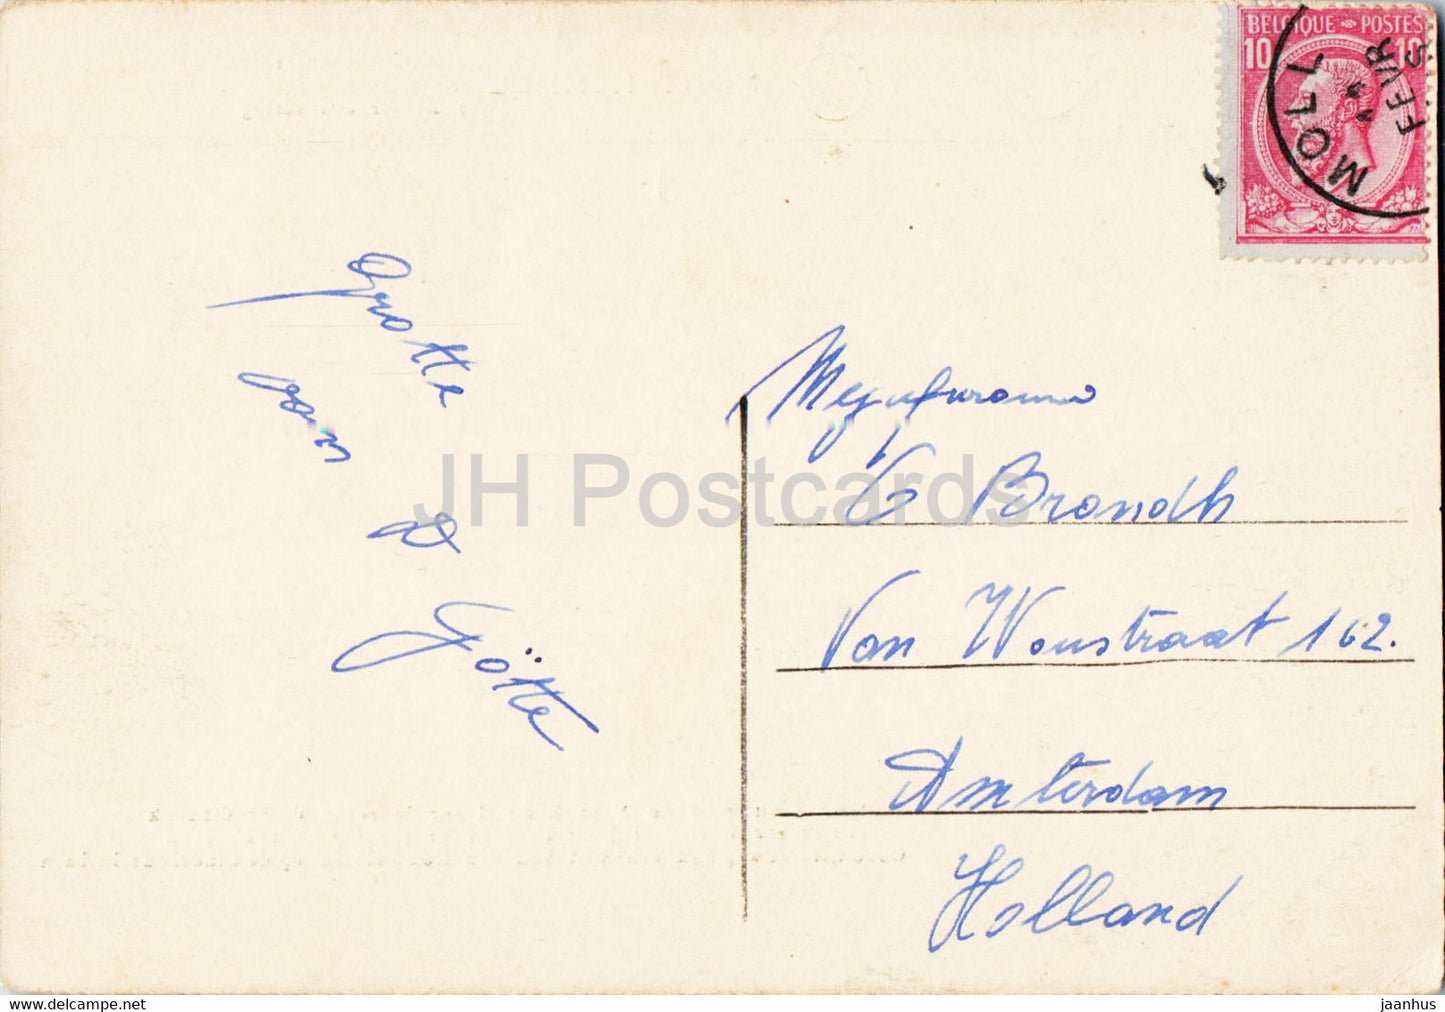 BELGIQUE POSTES
10 10
MOLL
FEVR
Grotte
van
D
Götte
Mejufvrouw
G Brondh
Van Woustraat 162.
Amsterdam
Holland
JH Postcards
www.delcampe.net
jaanhus